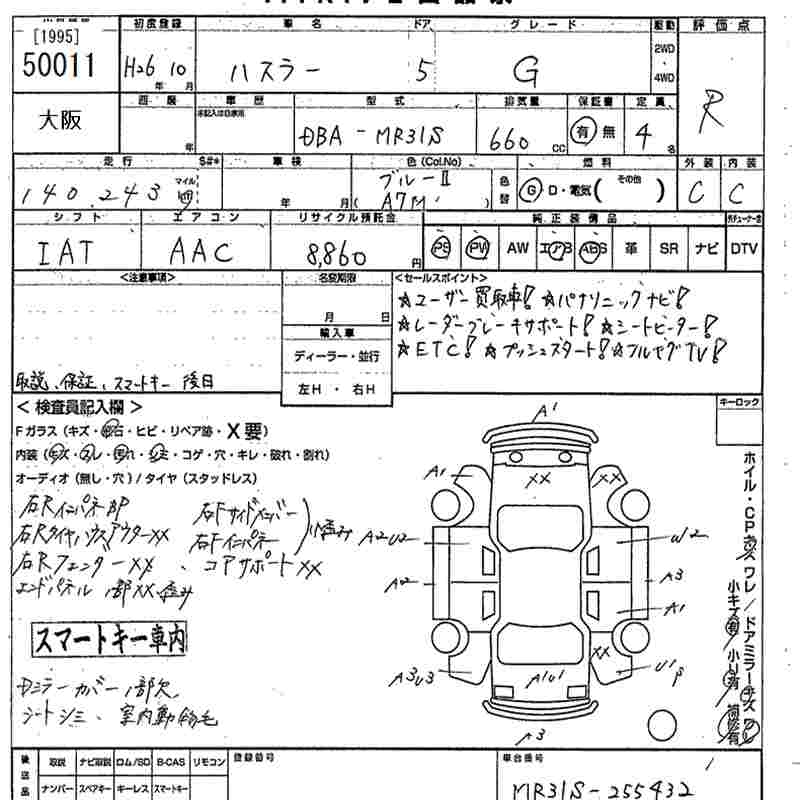 [1995]
50011
大阪
初度登録
H26 10
年 月
車名
ハスラー
ドア
5
グレード
G
駆動
2WD
4WD
評価点
R
車歴
年
型式
DBA - MR31S
排気量
660 CC
保証書
有 無
定員
4 名
走行
140,243
マイル
S#*
車検
年 月
色(Col.No)
ブルーⅡ
色替
燃料
G D・電気( その他 )
外装 内装
C C
シフト
IAT
エアコン
AAC
リサイクル預託金
8,860 円
純正装備品
PS PW AW エアB ABS 革 SR ナビ DTV
<注意事項>
取説、保証、スマートキー 後日
名変期限
月 日
輸入車
ディーラー・並行
左H・右H
<セールスポイント>
☆ユーザー買取車! ☆パナソニックナビ!
☆レーダーブレーキサポート! ☆シートヒーター!
☆ETC! ☆プッシュスタート! ☆フルセグTV!
キーロック
<検査員記入欄>
Fガラス(キズ・飛石・ヒビ・リペア跡・X要)
内装(キズ・スレ・汚れ・シミ・コゲ・穴・キレ・破れ・割れ)
オーディオ(無し・穴)/タイヤ(スタッドレス)
右Rインパネ部
右RタイヤハウスアウターXX
右RフェンダーXX、
エンドパネル 1部XX 歪み
右Fサイドメンバー
右Fインパネー
コアサポートXX
小歪み
スマートキー車内
Dミラーカバー1部欠
シートシミ、室内動物毛
A1
A1
XX
XX
A2U2
W2
A2
A3
A1
XX
A3U3
A1U1
U1
P
A3
ホイル・CPキズ ワレ/ドアミラーキズ ワレ
小キズ有 小U有 補修有
後送品
取説 ナビ取説 ロム/SD B-CAS リモコン
ナンバー スペアキー キーレス スマートキー
登録番号
車台番号
MR31S-255432